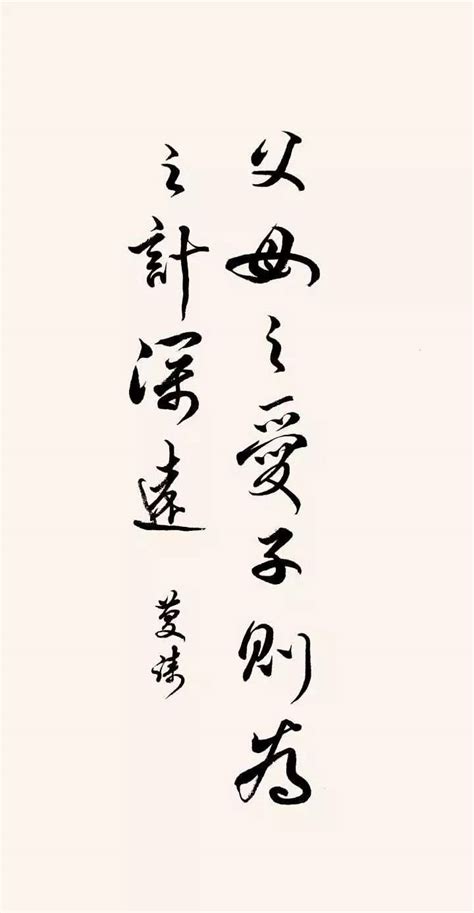 父母之愛子則為
之計深遠